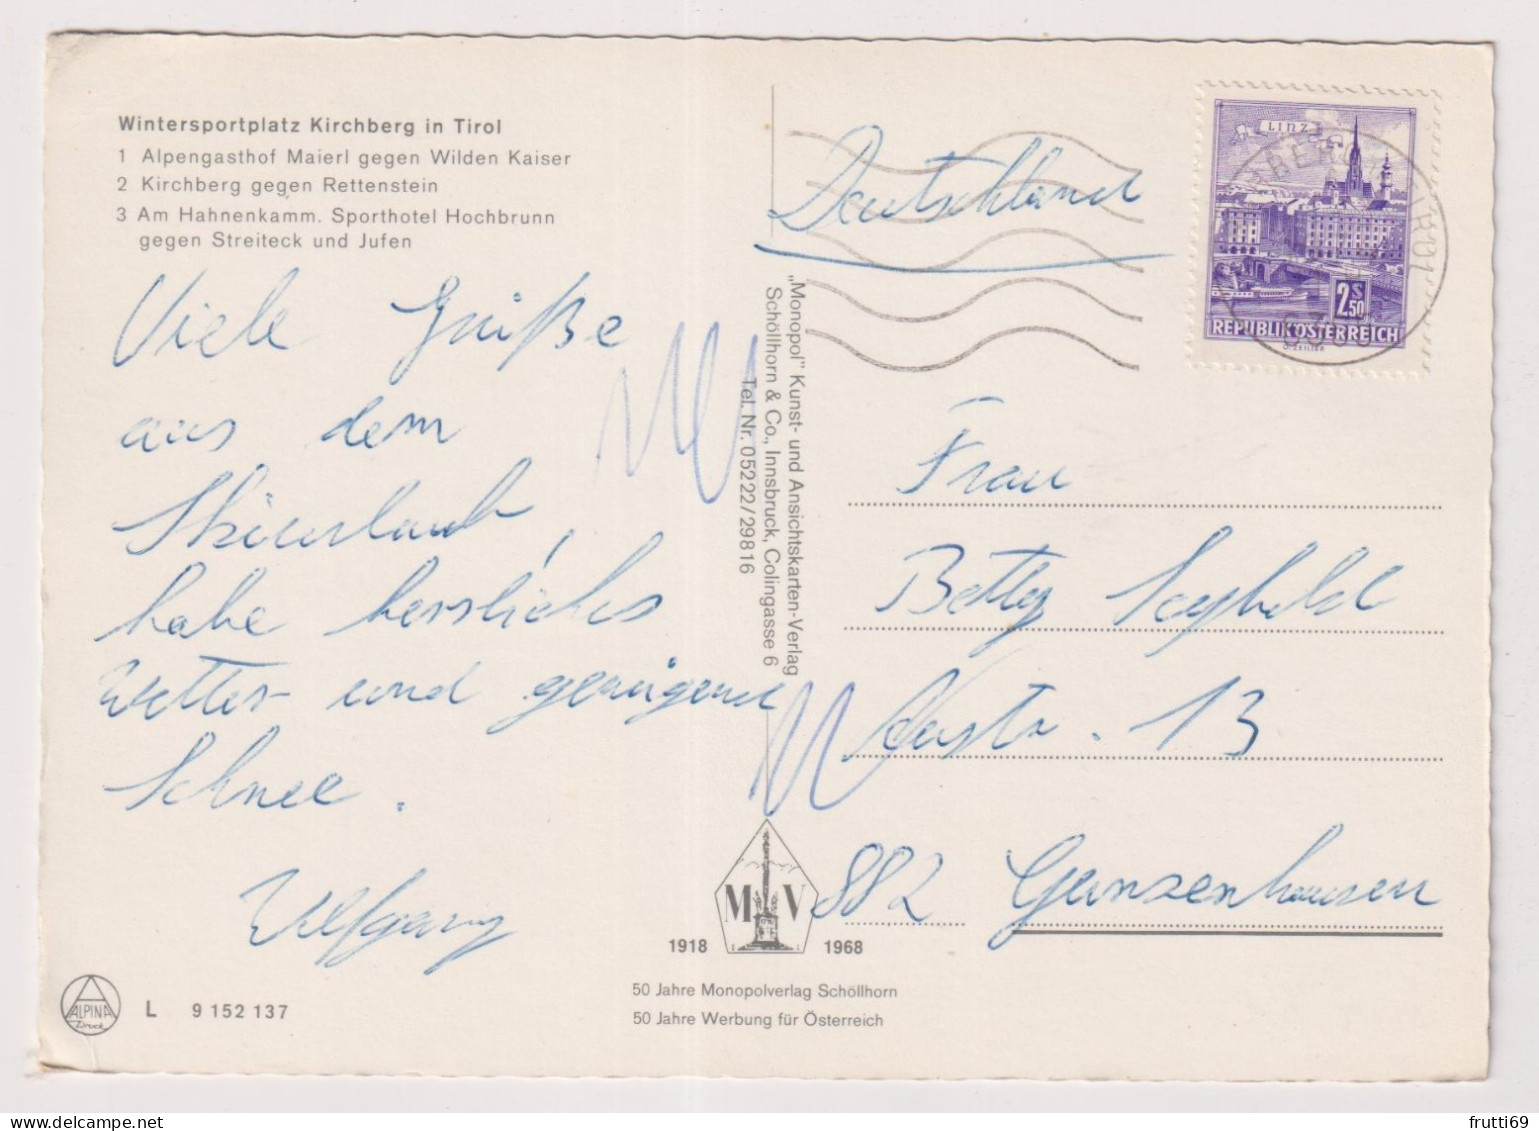 Wintersportplatz Kirchberg in Tirol
1 Alpengasthof Maierl gegen Wilden Kaiser
2 Kirchberg gegen Rettenstein
3 Am Hahnenkamm. Sporthotel Hochbrunn
gegen Streiteck und Jufen
Viele Grüße
aus dem
Skiurlaub,
habe herrliches
Wetter und genügend
Schnee.
Wolfgang
ALPINA
Druck
L 9 152 137
„Monopol" Kunst- und Ansichtskarten-Verlag
Schöllhorn & Co., Innsbruck, Colingasse 6
Tel. Nr. 05222/29816
M V
1918 1968
50 Jahre Monopolverlag Schöllhorn
50 Jahre Werbung für Österreich
Deutschland
LINZ
2 S 50
REPUBLIK ÖSTERREICH
Frau
Betty
13
882 Gunzenhausen
frutti69